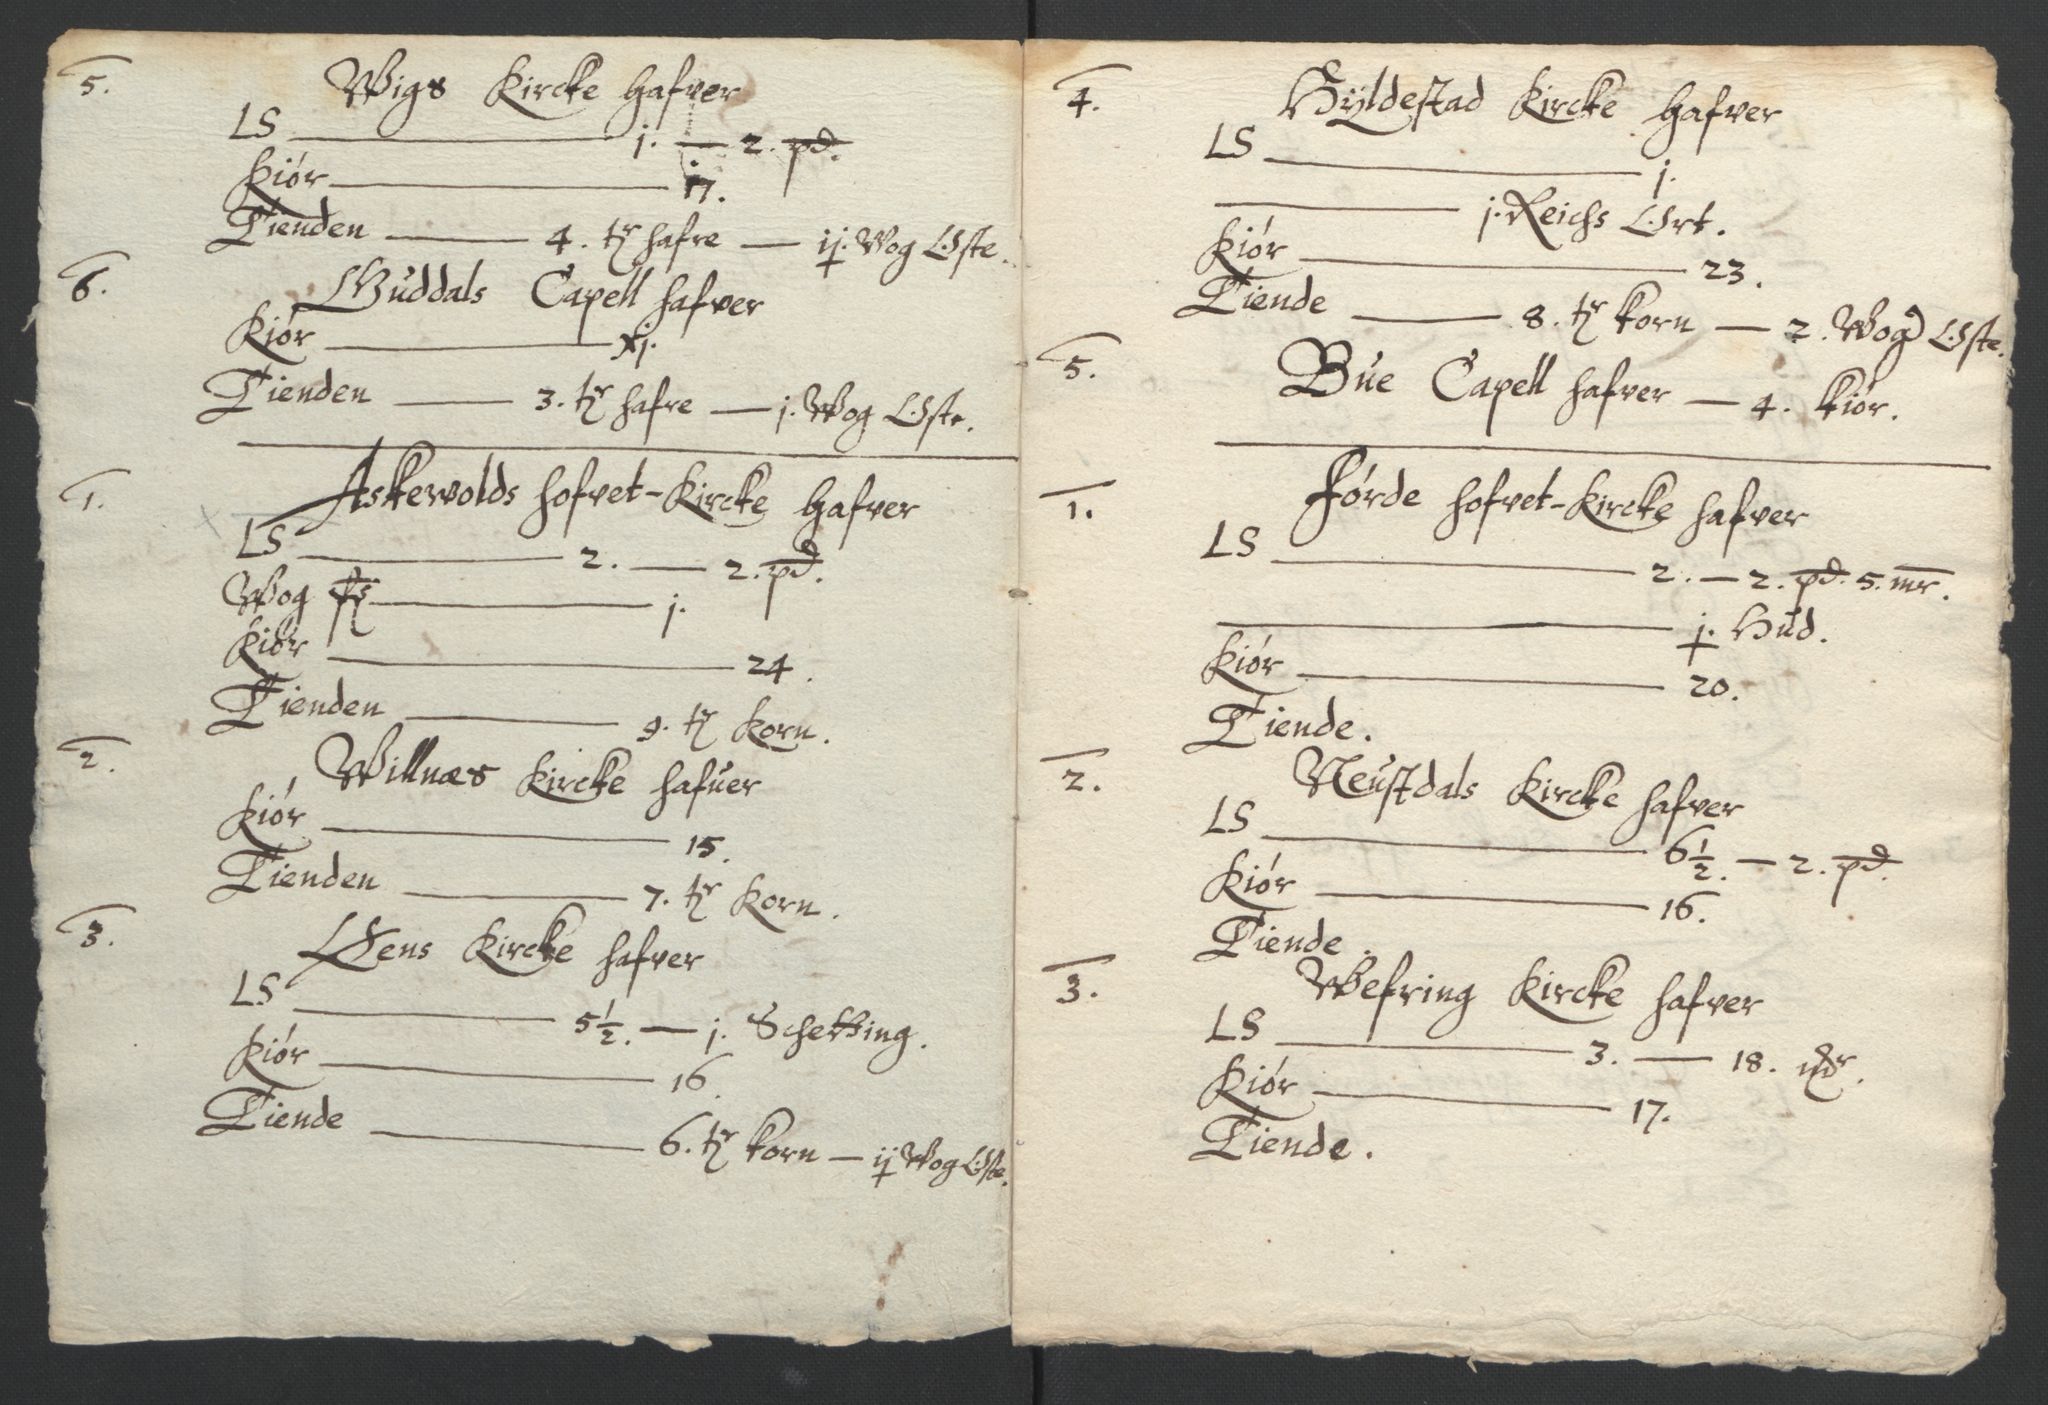 5. Wigs Kircke hafver
LS — j. — 2. pd.
Kiör — 17.
Tienden — 4. tr hafre — ij. Wog Oste.
6. Guddals Capell hafver
Kiör — xj.
Tienden — 3. tr hafre — j. Wog Oste.
1. Askevolds hofvet-Kircke hafver
LS — 2. — 2. pd.
Wog — j.
Kiör — 24.
Tienden — 9. tr Korn.
2. Willnæs Kircke hafuer
Kiör — 15.
Tienden — 7. tr Korn.
3. Øens Kircke hafver
LS — 5½. — j. Schetting.
Kiör — 16.
Tiende — 6. tr korn — ij Wog Oste.
4. Hÿldestad Kircke hafver
LS — j.
— j. Reichs Ort.
Kiör — 23.
Tiende — 8. tr korn — 2. Wog Oste.
5. Bue Capell hafver — 4. kiör.
1. Förde hofvet-Kircke hafver
LS — 2. — 2. pd. 5. mr.
— j. Hud.
Kiör — 20.
Tiende.
2. Neustdals Kircke hafver
LS — 6½. — 2. pd.
Kiör — 16.
Tiende.
3. Wefring Kircke hafver
LS — 3. — 18.
Kiör — 17.
Tiende.